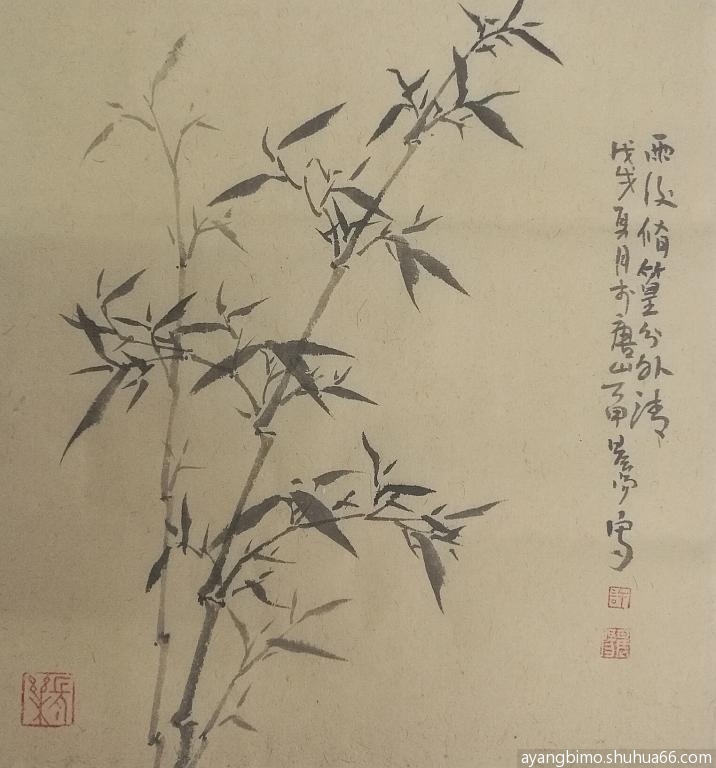 雨後脩篁分外清
戊戌夏月於唐山
寫
ayangbimo.shuhua66.com